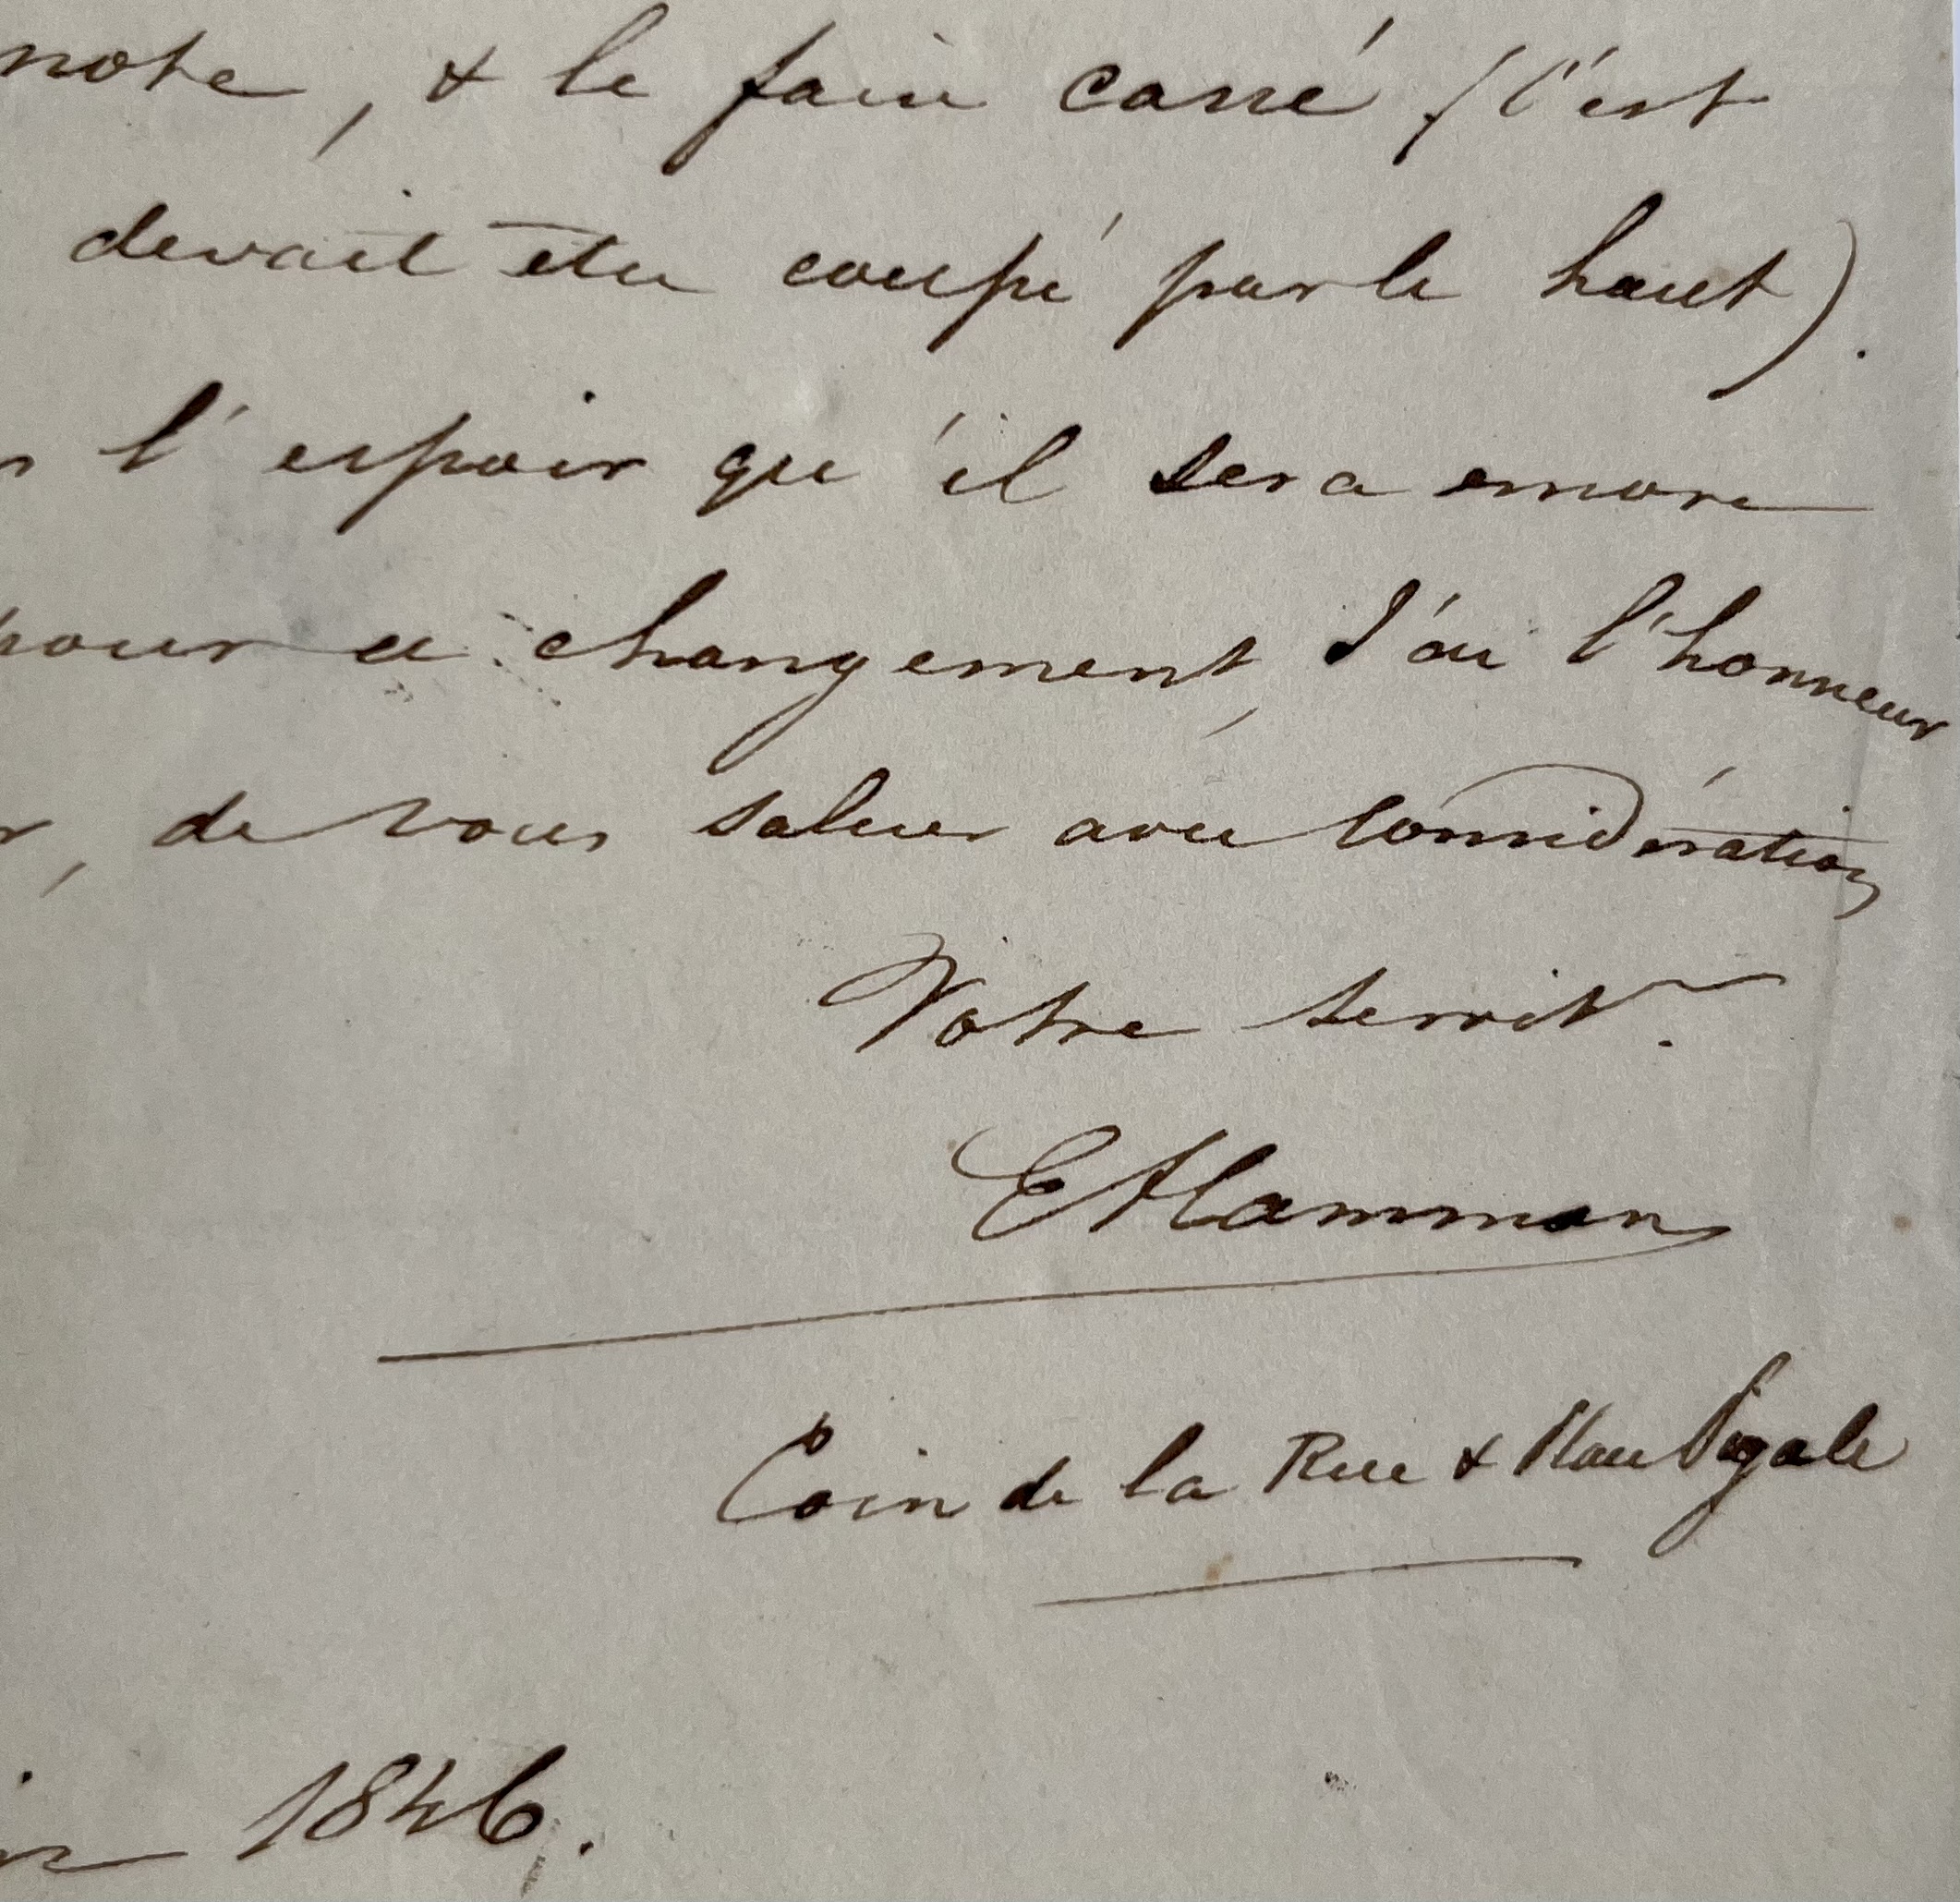 note, & le faire carré (c'est
devait être coupé par le haut).
l'espoir qu'il sera encore
pour ce changement, J'ai l'honneur
, de vous saluer avec considération
Votre servitr.
EHamman
Coin de la Rue & Place Pigale
1846.